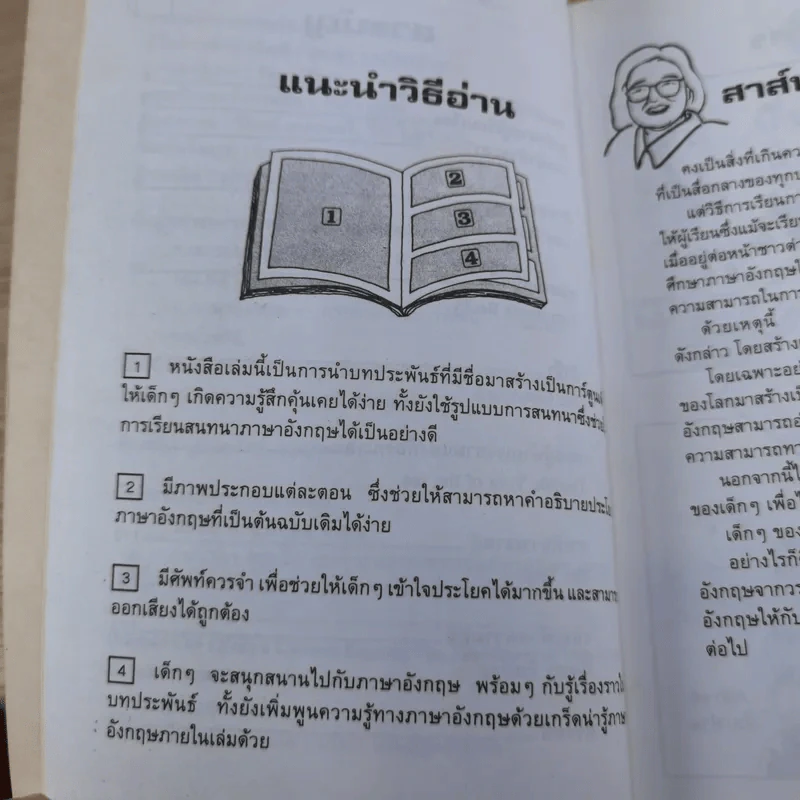 แนะนำวิธีอ่าน
1
2
3
4
1 หนังสือเล่มนี้เป็นการนำบทประพันธ์ที่มีชื่อมาสร้างเป็นการ์ตูน
ให้เด็กๆ เกิดความรู้สึกคุ้นเคยได้ง่าย ทั้งยังใช้รูปแบบการสนทนาซึ่งช่วย
การเรียนสนทนาภาษาอังกฤษได้เป็นอย่างดี
2 มีภาพประกอบแต่ละตอน ซึ่งช่วยให้สามารถหาคำอธิบายประโย
ภาษาอังกฤษที่เป็นต้นฉบับเดิมได้ง่าย
3 มีศัพท์ควรจำ เพื่อช่วยให้เด็กๆ เข้าใจประโยคได้มากขึ้น และสามา
ออกเสียงได้ถูกต้อง
4 เด็กๆ จะสนุกสนานไปกับภาษาอังกฤษ พร้อมๆ กับรู้เรื่องราว
บทประพันธ์ ทั้งยังเพิ่มพูนความรู้ทางภาษาอังกฤษด้วยเกร็ดน่ารู้ภาษ
อังกฤษภายในเล่มด้วย
สาส์
คงเป็นสิ่งที่เกินคว
ที่เป็นสื่อกลางของทุกป
แต่วิธีการเรียนกา
ให้ผู้เรียนซึ่งแม้จะเรีย
เมื่ออยู่ต่อหน้าชาวต่า
ศึกษาภาษาอังกฤษใ
ความสามารถในการ
ด้วยเหตุนี้
ดังกล่าว โดยสร้างเ
โดยเฉพาะอย่
ของโลกมาสร้างเป็
อังกฤษสามารถอ
ความสามารถทา
นอกจากนี้ไ
ของเด็กๆ เพื่อใ
เด็กๆ ของ
อย่างไรก็
อังกฤษจากวร
อังกฤษให้กับ
ต่อไป